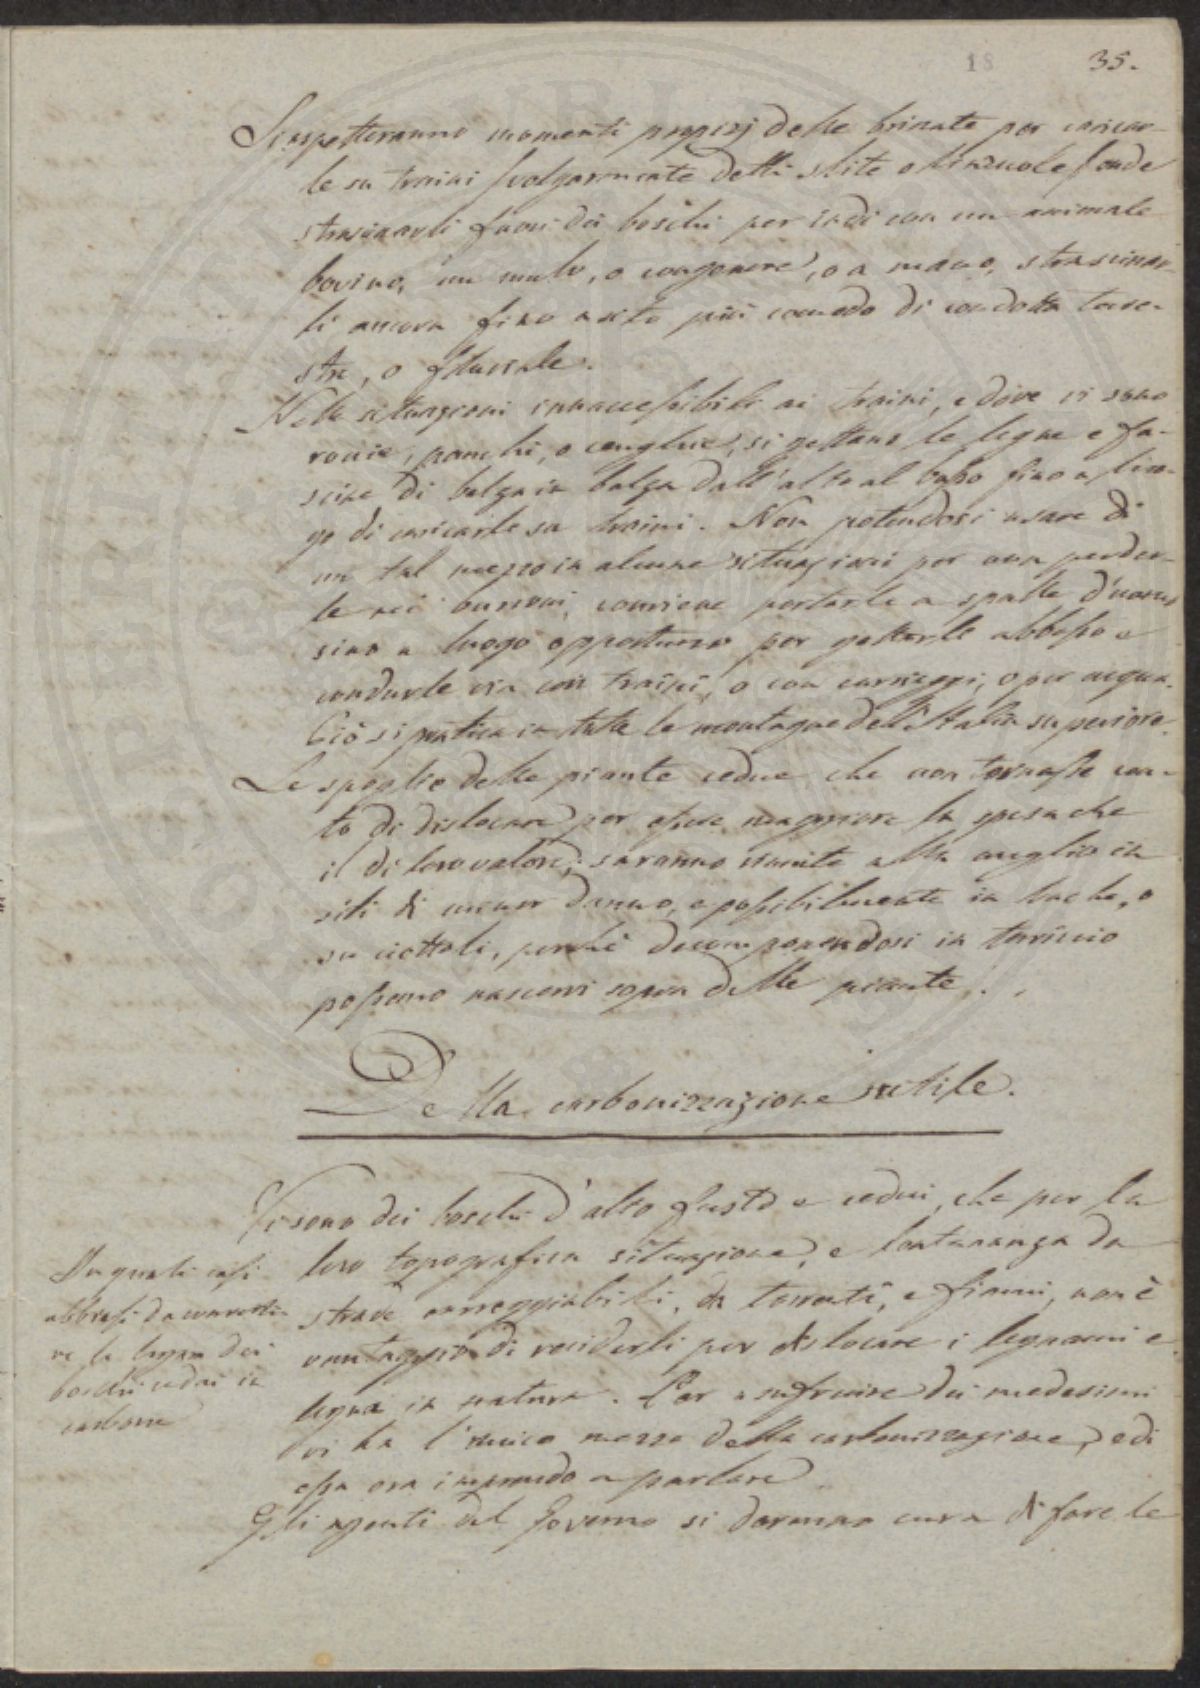 18 35.
Si aspetteranno momenti propizj delle brinate per caricar-
le su traini (volgarmente detti slite o strazuole) onde
strascinarli fuori dei boschi per indi con un animale
bovino, un mulo, o congenere, o a mano, strascinar-
li ancora fino a sito più comodo di condotta terre-
stre, o fluviale.
Nelle situazioni innaccessibili ai traini, e dove vi sono
roccie, o si gettano le legne e fa-
scine di balza in balza dall'alto al basso fino a luo-
go di caricarle su traini. Non potendosi usare di
un tal mezzo in alcune situazioni per non perder-
le nei burroni, conviene portarle a spalle d'uomo
sino a luogo opportuno per gettarle abbasso e
condurle via con traini, o con carreggi, o per acqua.
Ciò si pratica in tutte le montagne dell'Italia superiore.
Le spoglie delle piante cedue che non tornasse con-
to di dislocare per esser maggiore la spesa che
il di loro valore, saranno riunite alla meglio in
siti di minor danno, e possibilmente in buche, o
su ciottoli, perchè decomponendosi in terriccio
possono nascervi sopra delle piante.
Della carbonizzazione utile.
Vi sono dei boschi d'alto fusto e cedui, che per la
loro topografica situazione, e lontananza da
strade carreggiabili, da torrenti, e fiumi, non è
vantaggio di reciderli per dislocare i legnami e
legna in natura. Per usufruire dei medesimi
vi ha l'unico mezzo della carbonizzazione, e di
essa ora imprendo a parlare.
Gli agenti del Governo si daranno cura di fare le
In quali casi
abbiasi da converti-
re le legna dei
boschi cedui in
carbone